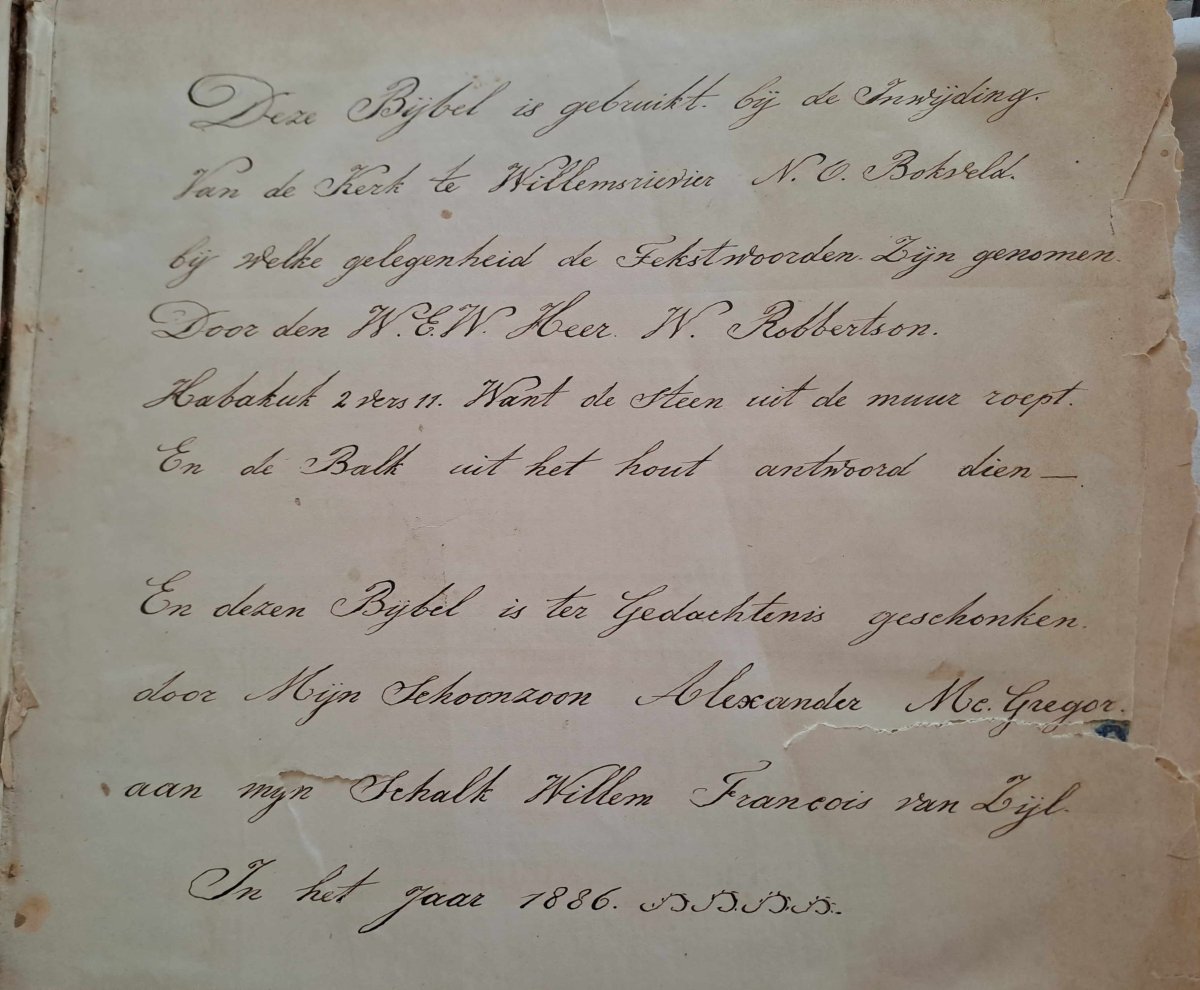 Deze Bijbel is gebruikt. bij de Inwijding.
Van de Kerk te Willemsrievier N. O. Bokveld.
bij welke gelegenheid de Tekstwoorden. Zijn genomen.
Door den W.E.W. Heer. W. Robbertson.
Habakuk 2 vers 11. Want de Steen uit de muur roept.
En de Balk uit het hout antwoord dien —
En dezen Bijbel is ter Gedachtenis geschonken.
door Mijn Schoonzoon Alexander Mc. Gregor.
aan mijn Schalk Willem Francois van Zijl.
In het Jaar 1886.